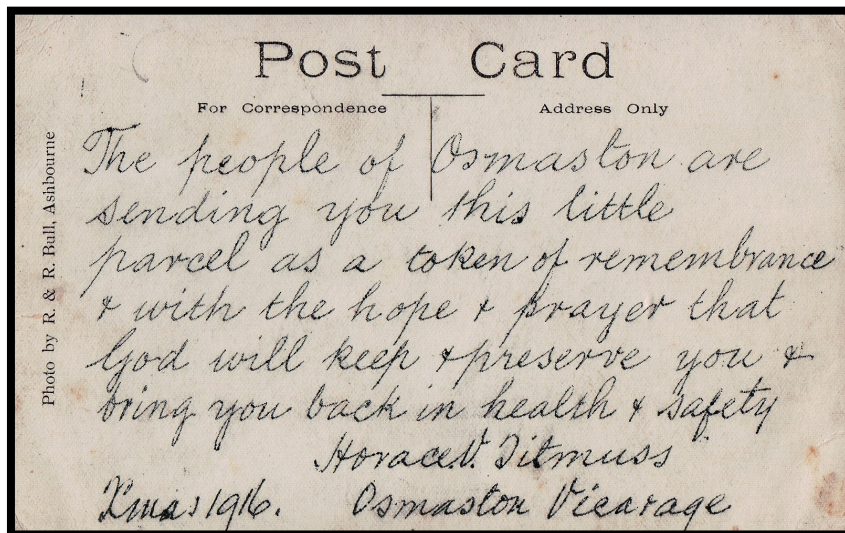 Post Card
For Correspondence
Address Only
Photo by R. & R. Bull, Ashbourne
The people of Osmaston are
sending you this little
parcel as a token of remembrance
& with the hope & prayer that
God will keep & preserve you &
bring you back in health & safety
Horace V. Titmuss
Xmas 1916. Osmaston Vicarage